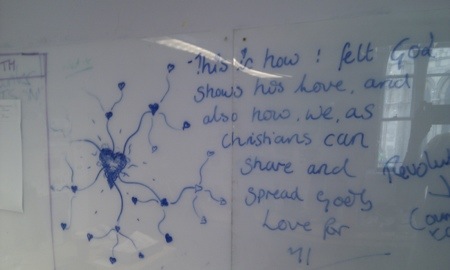 TH
This is how I felt God
shows his love, and
also how, we, as
Christians can
share and
spread God's
Love for